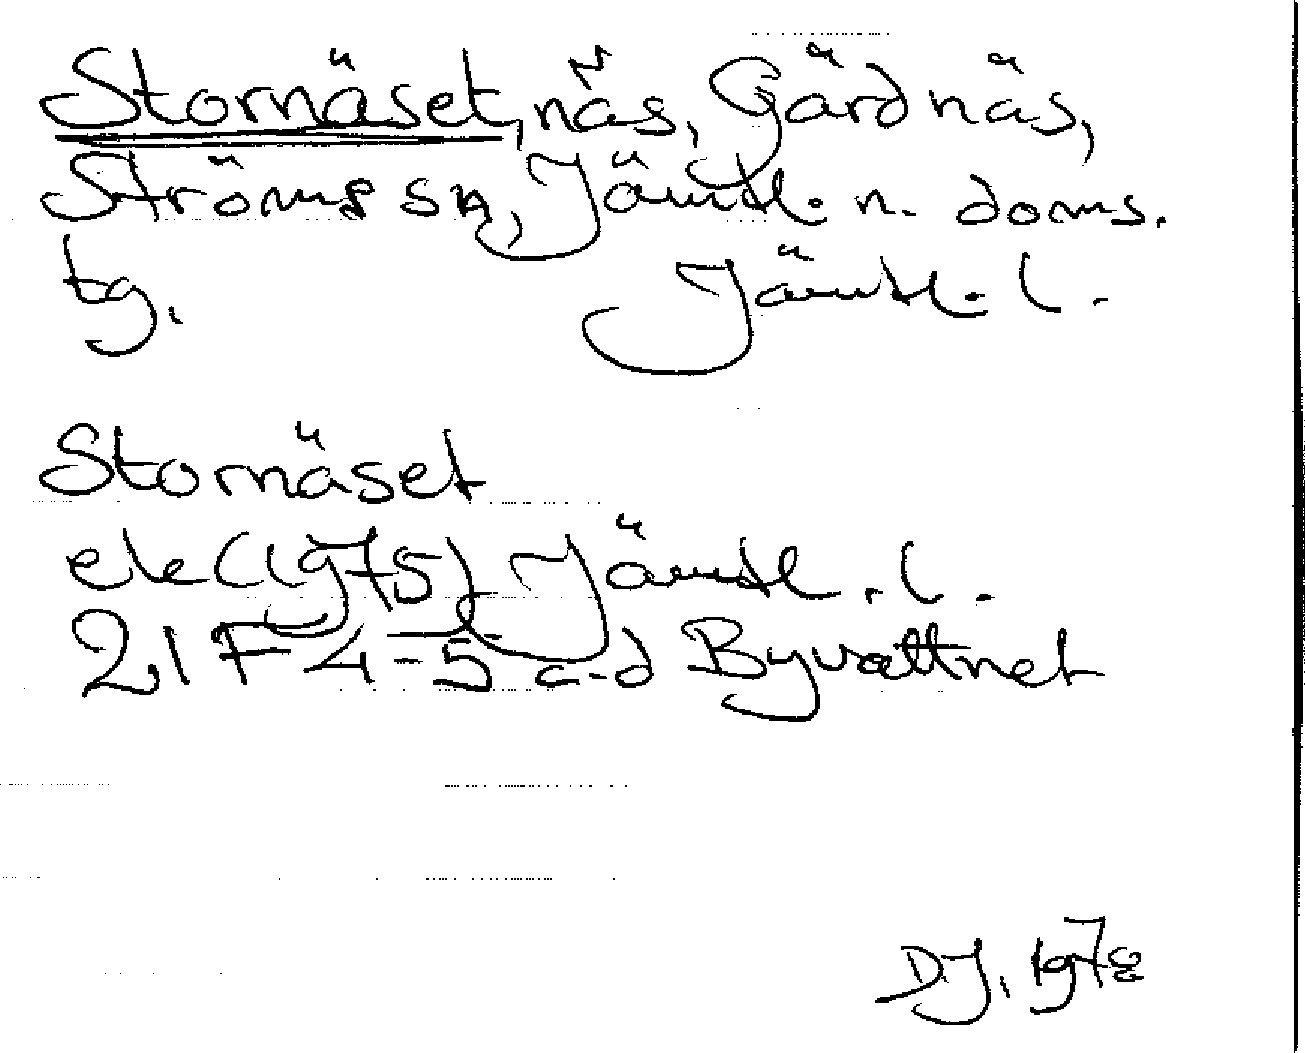 Stornäset, näs, Gärdnäs,
Ströms sn, Jämtl. n. doms.
tg. Jämtl. l.
Stornäset
ek (1975) Jämtl. l.
21 F 4-5 c-d Byvattnet
D.J. 1978